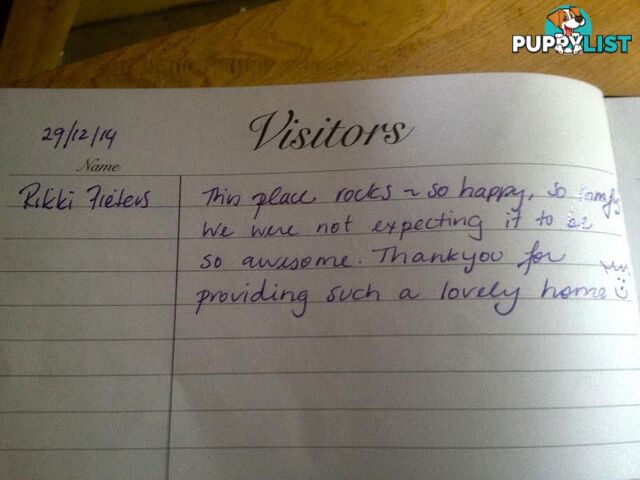 PUPPYLIST
Visitors
29/12/14
Name
Rikki Fieters
This place rocks ~ so happy, so comfy
We were not expecting it to be
so awesome. Thankyou for
providing such a lovely home